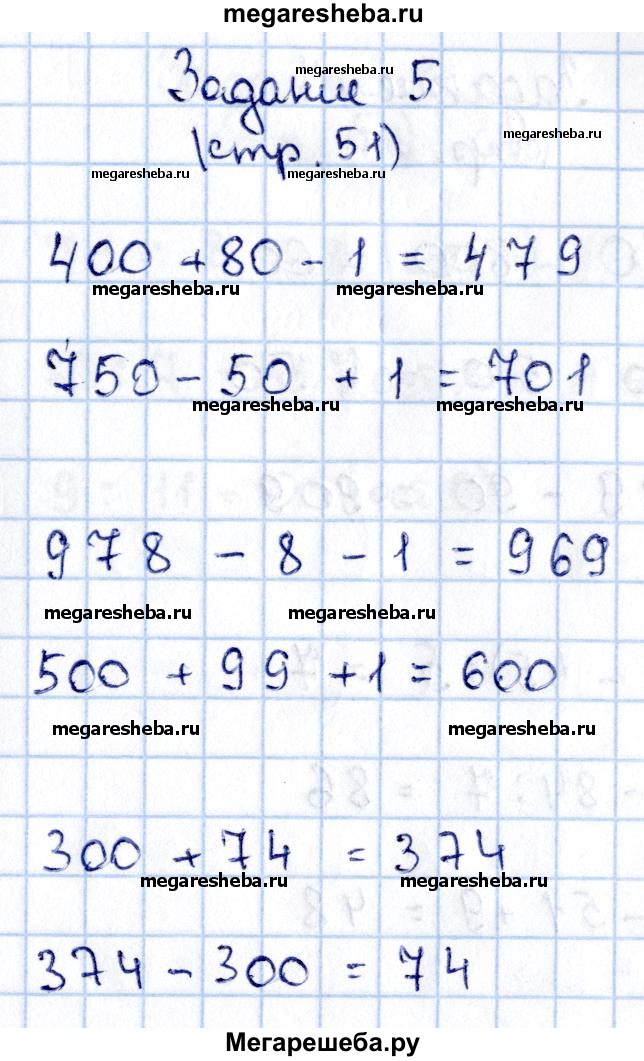 megaresheba.ru
Задание 5
megaresheba.ru
megaresheba.ru
(стр. 51)
megaresheba.ru megaresheba.ru
400 + 80 - 1 = 479
megaresheba.ru megaresheba.ru
750 - 50 + 1 = 701
megaresheba.ru megaresheba.ru
978 - 8 - 1 = 969
megaresheba.ru megaresheba.ru
500 + 99 + 1 = 600
megaresheba.ru megaresheba.ru
300 + 74 = 374
megaresheba.ru megaresheba.ru
374 - 300 = 74
Мегарешеба.ру